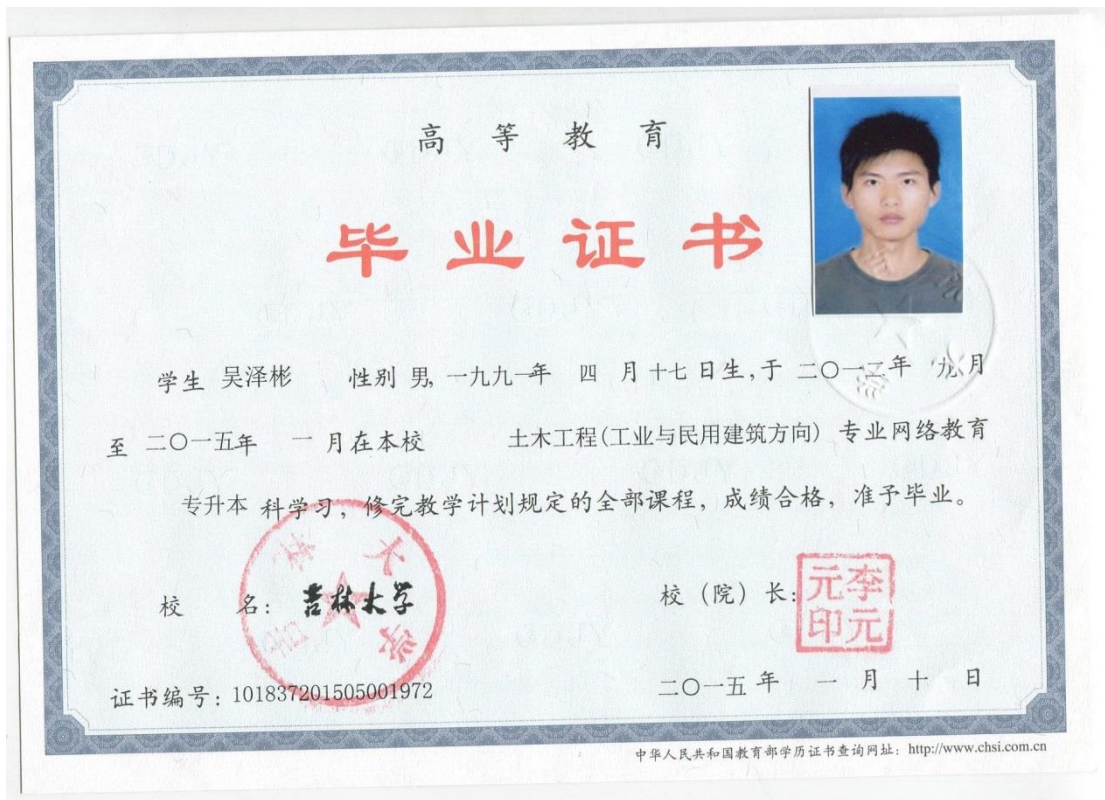 高等教育
毕业证书
学生 吴泽彬 性别 男, 一九九一年 四 月 十七 日生, 于 二〇一二年 九月
至 二〇一五年 一 月在本校 土木工程(工业与民用建筑方向) 专业网络教育
专升本 科学习, 修完教学计划规定的全部课程, 成绩合格, 准予毕业。
校 名: 吉林大学
吉林大学
校（院）长:
李元元印
证书编号: 101837201505001972
二〇一五 年 一 月 十 日
中华人民共和国教育部学历证书查询网址: http://www.chsi.com.cn